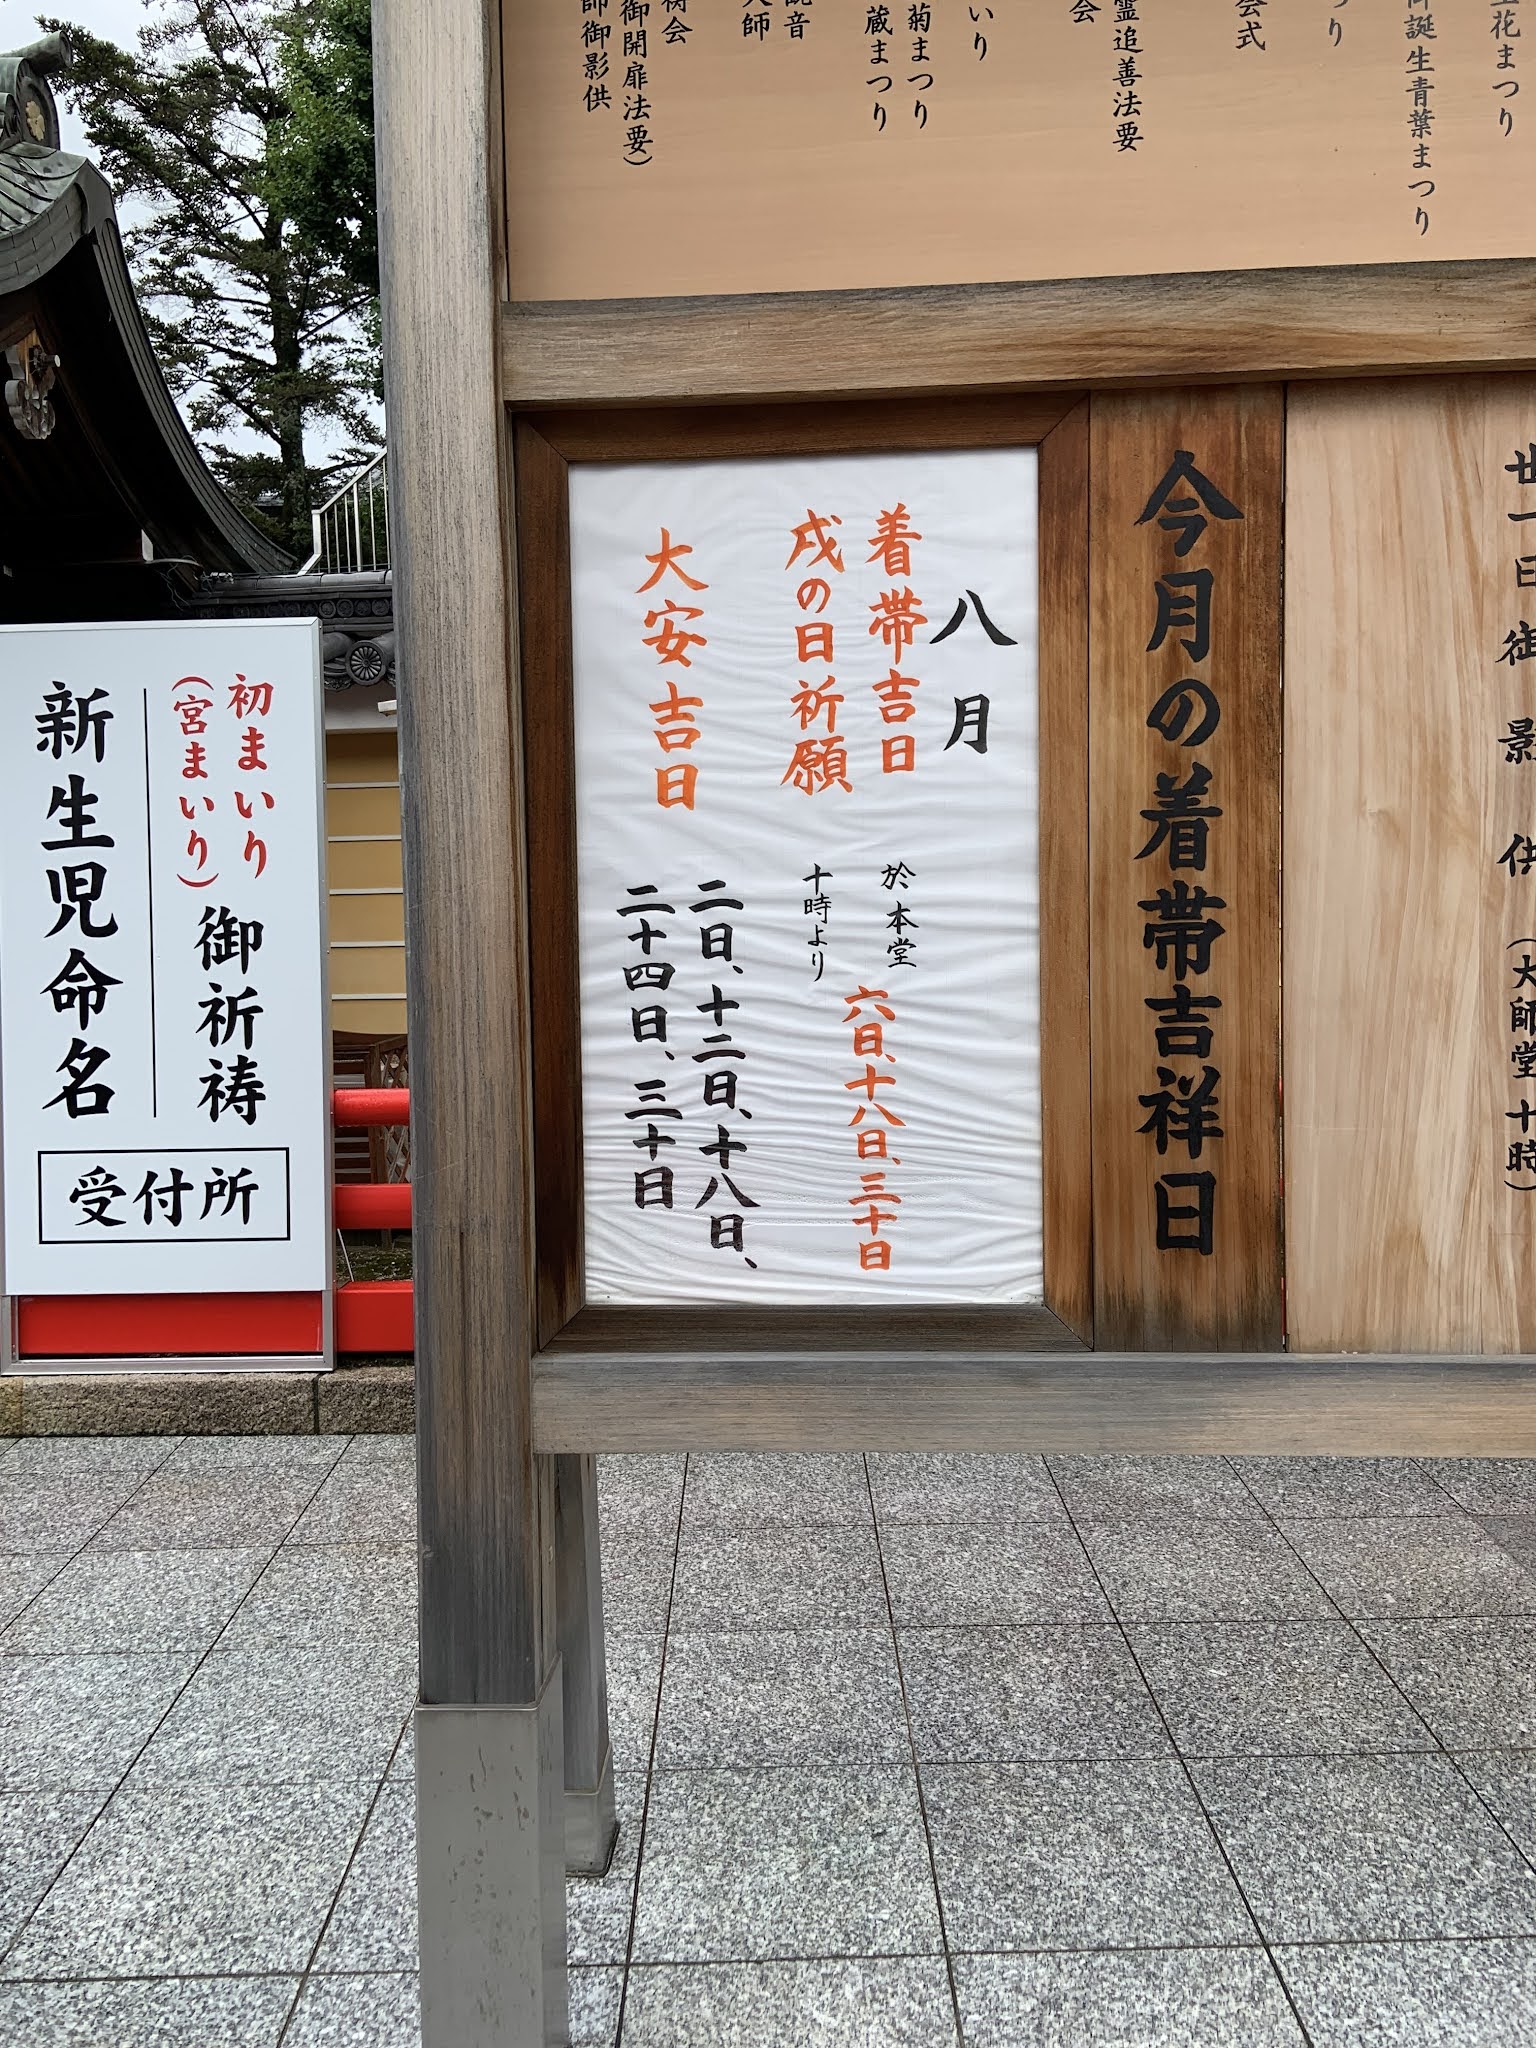 花まつり
誕生青葉まつり
つり
会式
霊追善法要
会
いり
菊まつり
蔵まつり
観音
大師
祷会
御開扉法要)
師御影供
廿一日御影供(大師堂十時)
今月の着帯吉祥日
八月
着帯吉日
戌の日祈願
於本堂
十時より
六日、十八日、三十日
大安吉日
二日、十二日、十八日、
二十四日、三十日
初まいり
(宮まいり)
御祈祷
新生児命名
受付所